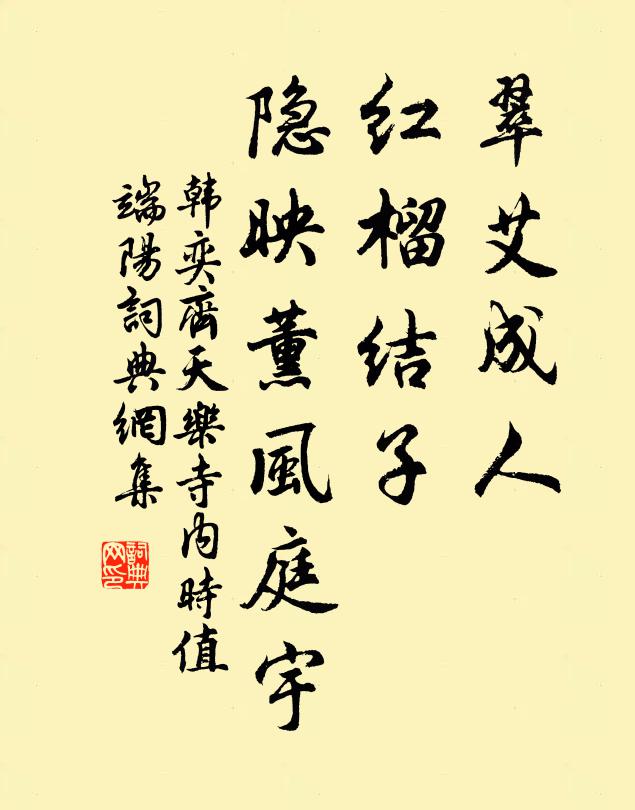 翠艾成人
红榴结子
隐映薰風庭宇
韩奕齊天樂寺内時值
端陽詞典網集
詞典
网印